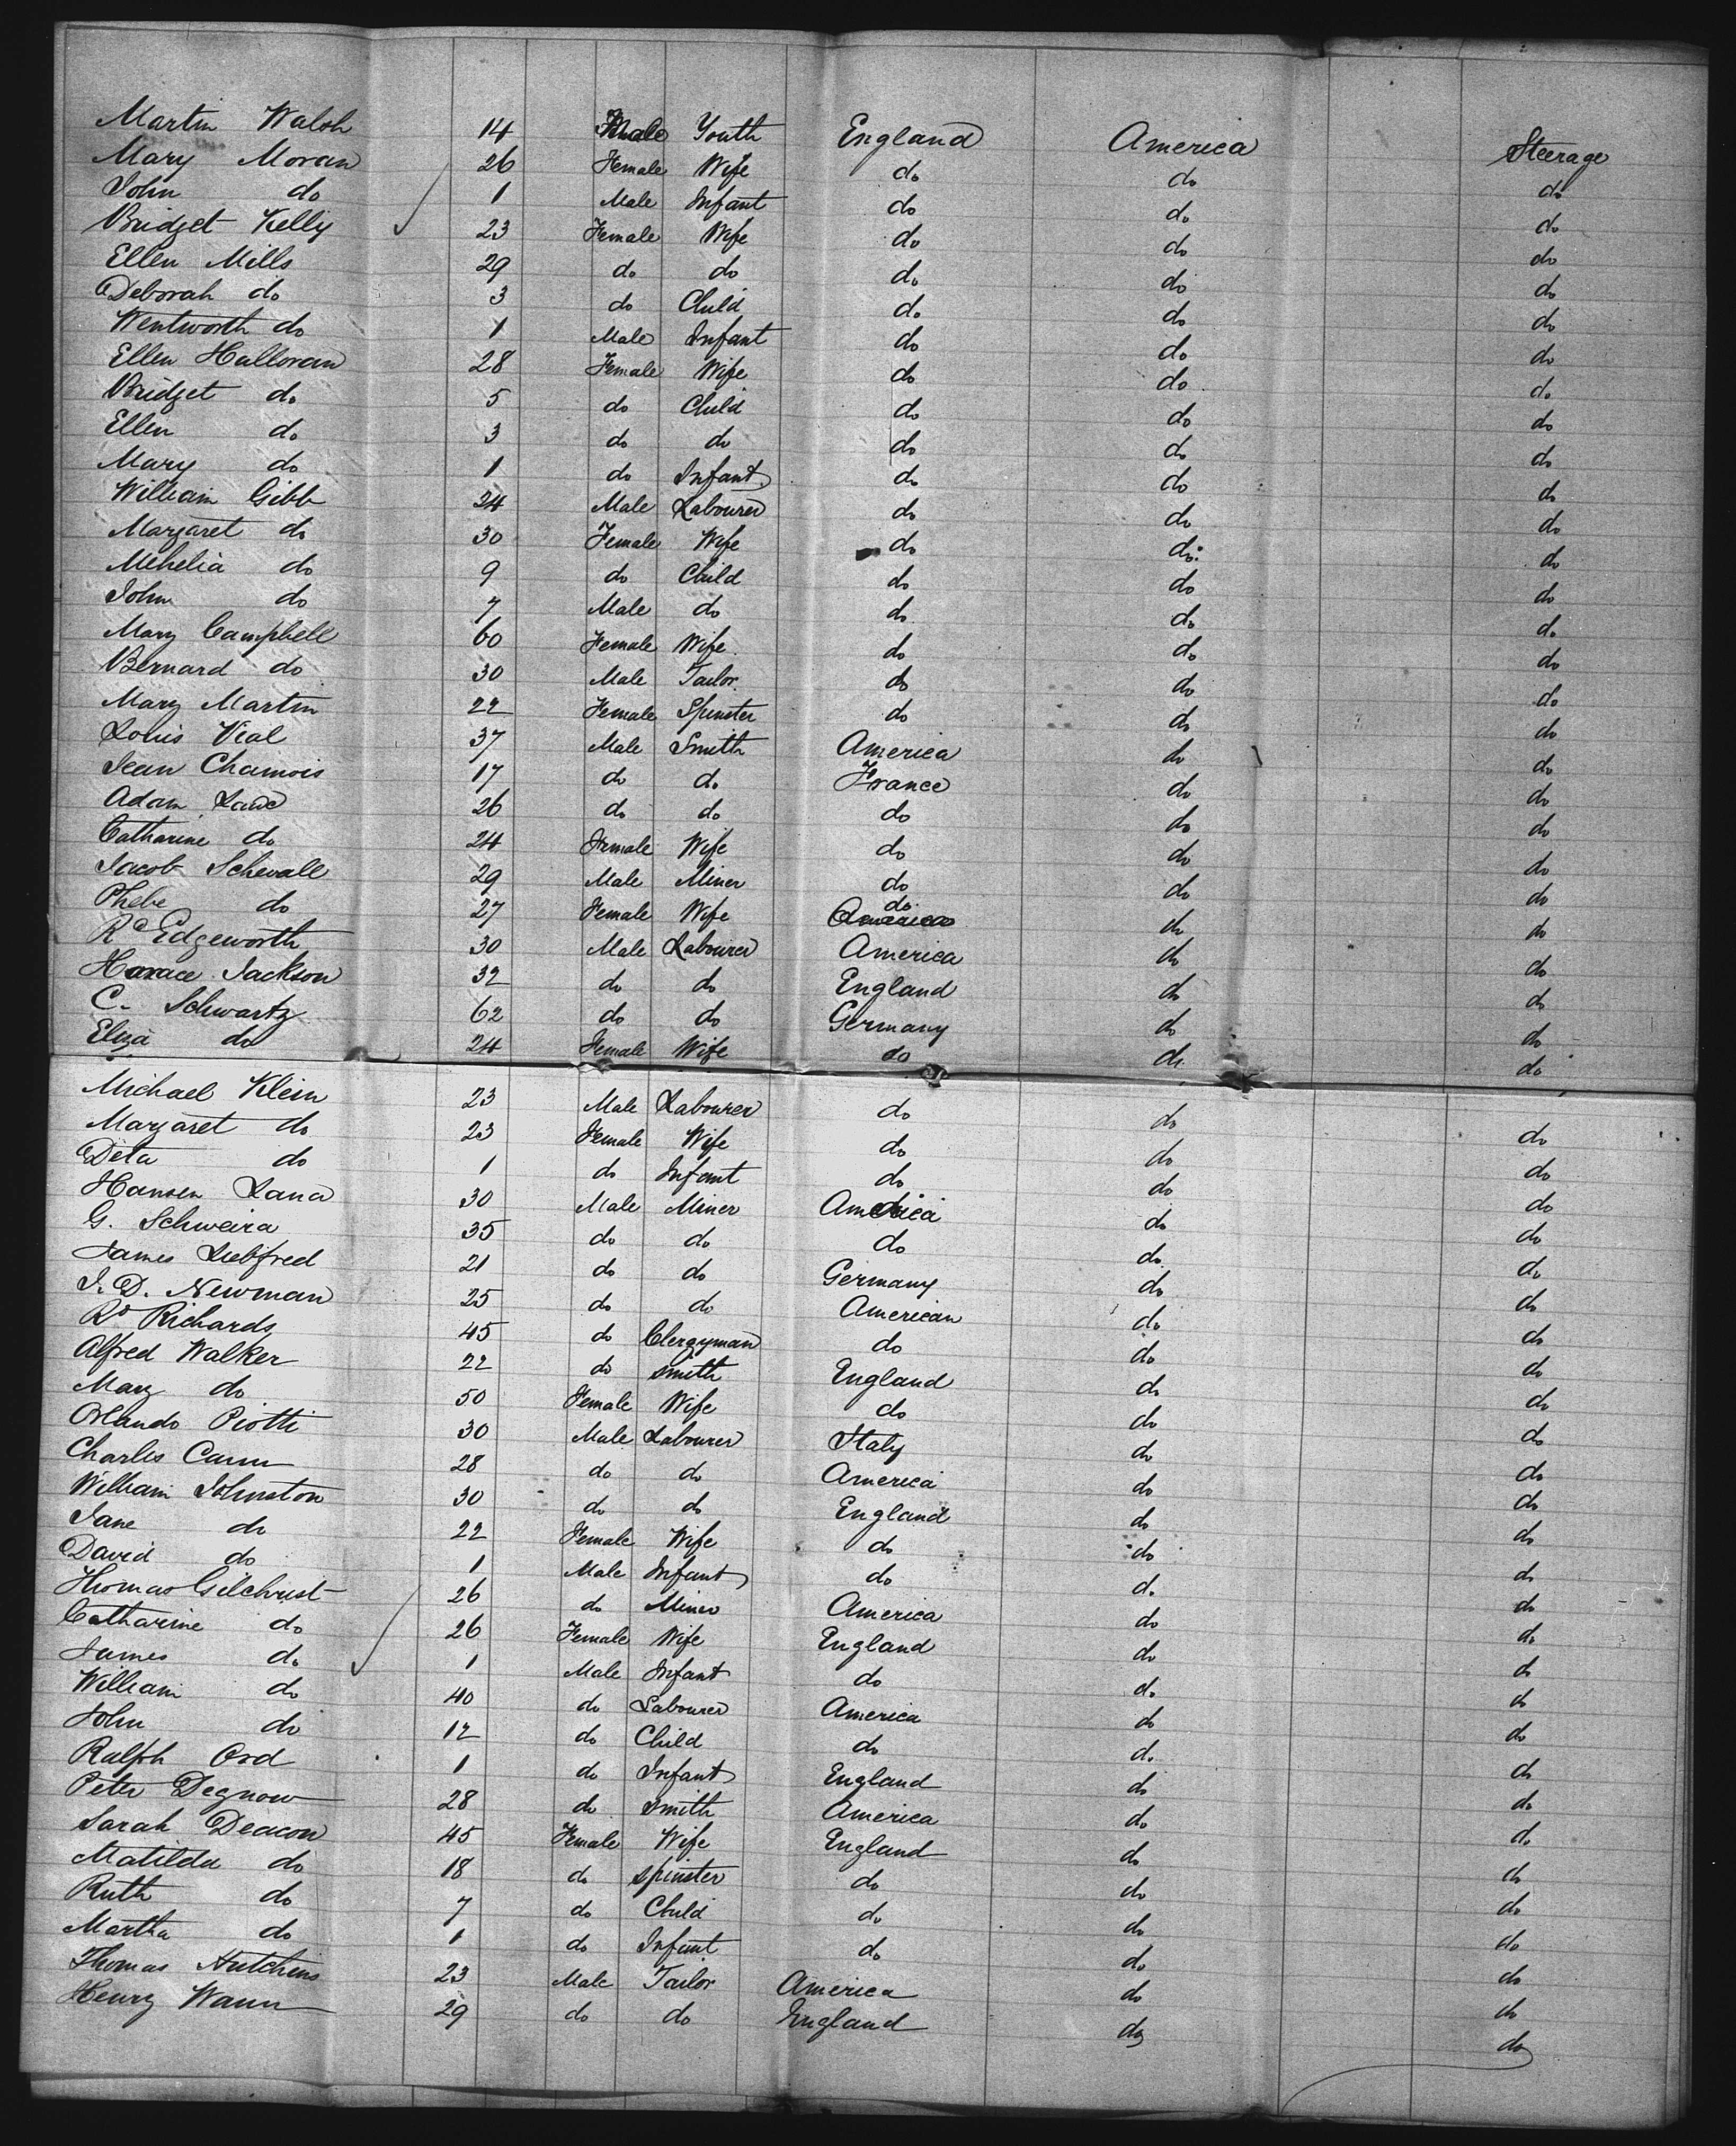 Martin Walsh 14 Male Youth England America Steerage
Mary Moran 26 Female Wife do do do
John do 1 Male Infant do do do
Bridget Kelly 23 Female Wife do do do
Ellen Mills 29 do do do do do
Deborah do 3 do Child do do do
Wentworth do 1 Male Infant do do do
Ellen Halloran 28 Female Wife do do do
Bridget do 5 do Child do do do
Ellen do 3 do do do do do
Mary do 1 do Infant do do do
William Gibb 24 Male Labourer do do do
Margaret do 30 Female Wife do do do
Mehelia do 9 do Child do do do
John do 7 Male do do do do
Mary Campbell 60 Female Wife do do do
Bernard do 30 Male Tailor do do do
Mary Martin 22 Female Spinster do do do
Louis Vial 37 Male Smith America do do
Jean Chamois 17 do do France do do
Adam 26 do do do do do
Catharine do 24 Female Wife do do do
Jacob Schevalle 29 Male Miner do do do
Phebe do 27 Female Wife do America do do
Rd Edgeworth 30 Male Labourer America do do
Horace Jackson 32 do do England do do
C. Schwartz 62 do do Germany do do
Eliza do 24 Female Wife do do do
Michael Klein 23 Male Labourer do do do
Margaret do 23 Female Wife do do do
Deta do 1 do Infant do do do
Hansen Lana 30 Male Miner America do do
G. Schweira 35 do do do do do
James Liebfred 21 do do Germany do do
J. D. Newman 25 do do American do do
Rd Richards 45 do Clergyman do do do
Alfred Walker 22 do Smith England do do
Mary do 50 Female Wife do do do
Orlando Piotti 30 Male Labourer Italy do do
Charles Cann 28 do do America do do
William Johnston 30 do do England do do
Jane do 22 Female Wife do do do
David do 1 Male Infant do do do
Thomas Gilchrist 26 do Miner America do do
Catharine do 26 Female Wife England do do
James do 1 Male Infant do do do
William do 40 do Labourer America do do
John do 12 do Child do do do
Ralph Ord 1 do Infant England do do
Peter Degnow 28 do Smith America do do
Sarah Deacon 45 Female Wife England do do
Matilda do 18 do Spinster do do do
Ruth do 7 do Child do do do
Martha do 1 do Infant do do do
Thomas Hutchins 23 Male Tailor America do do
Henry Wann 29 do do England do do